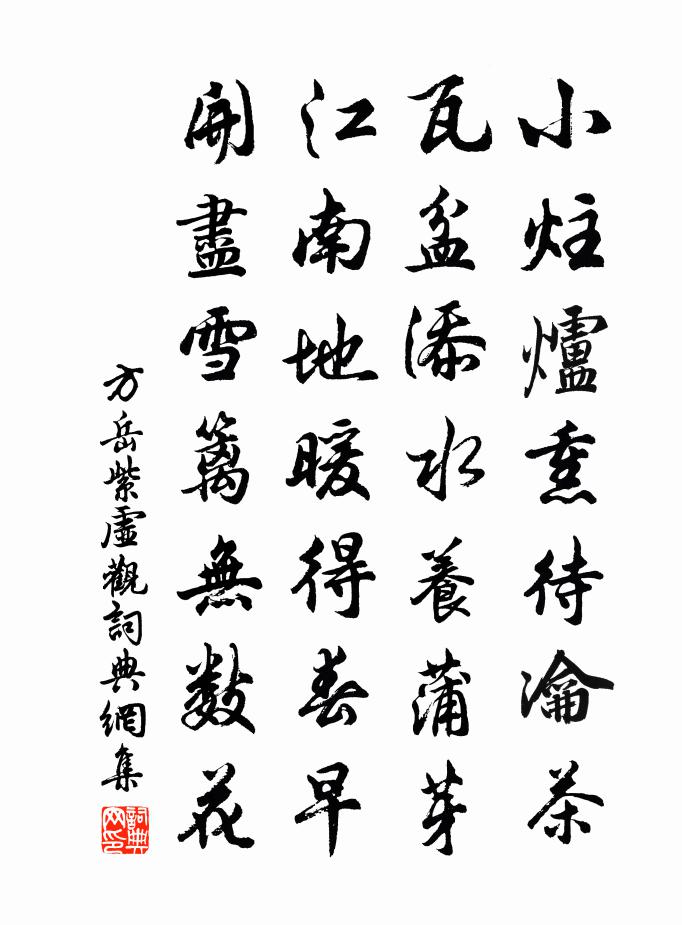 小炷爐熏待瀹茶
瓦盆添水養蒲芽
江南地暖得春早
開盡雪籬無數花
方岳紫虛觀詞典網集
詞典网印